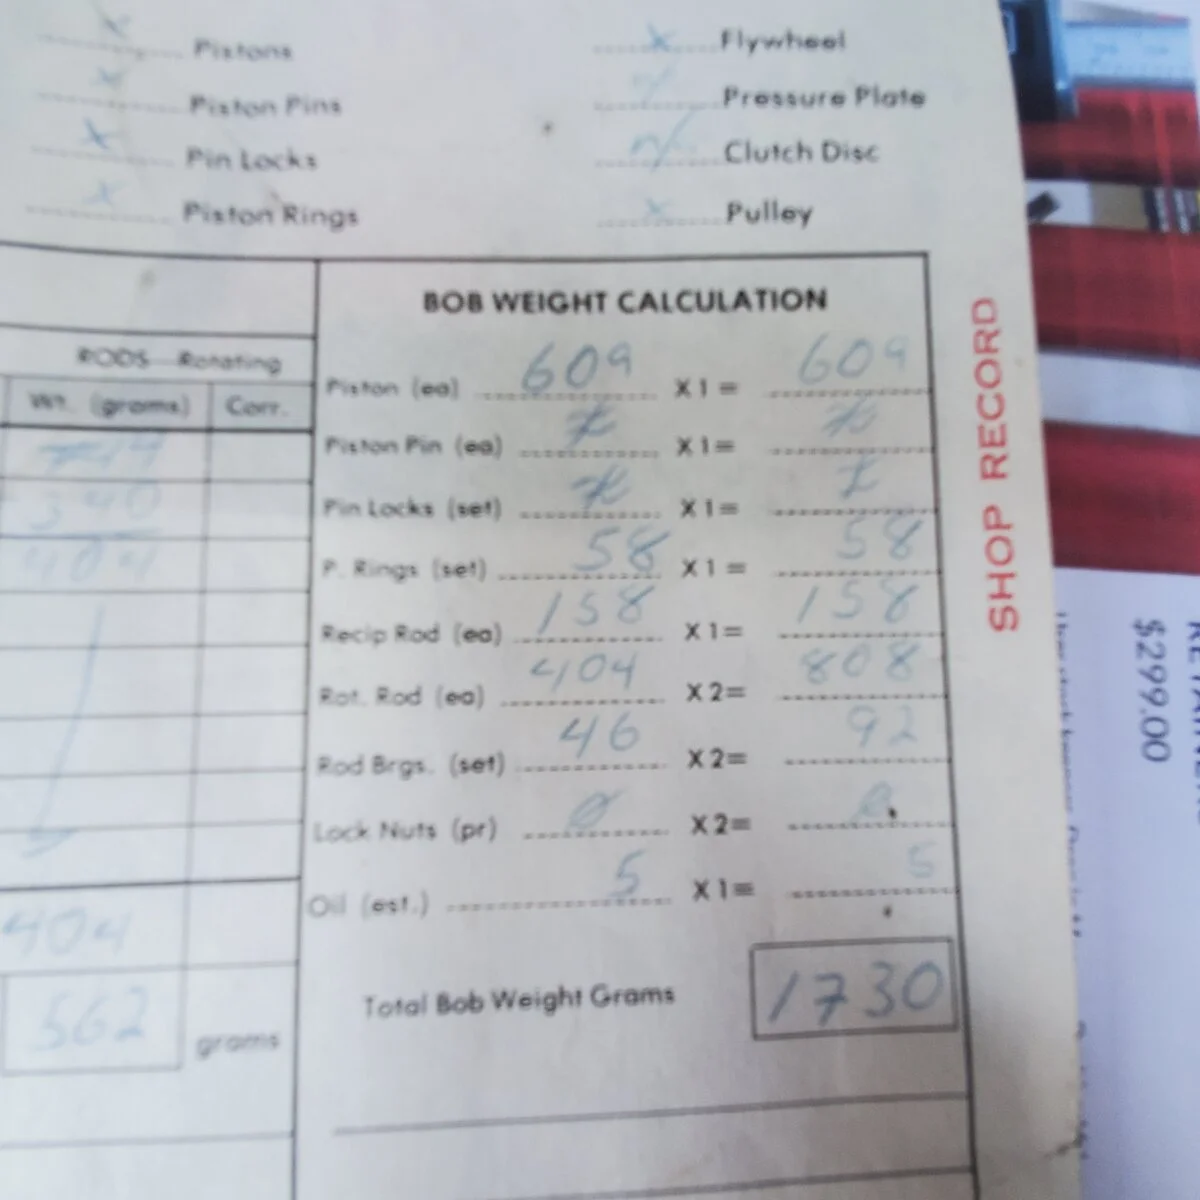 x Pistons
x Piston Pins
x Pin Locks
x Piston Rings
x Flywheel
Pressure Plate
Clutch Disc
x Pulley
RODS Rotating
Wt. (grams) Corr.
340
404
404
562 grams
BOB WEIGHT CALCULATION
Piston (ea) 609 X 1 = 609
Piston Pin (ea) X 1 =
Pin Locks (set) X 1 =
P. Rings (set) 58 X 1 = 58
Recip Rod (ea) 158 X 1 = 158
Rot. Rod (ea) 404 X 2 = 808
Rod Brgs. (set) 46 X 2 = 92
Lock Nuts (pr) 0 X 2 = 0
Oil (est.) 5 X 1 = 5
Total Bob Weight Grams 1730
SHOP RECORD
$299.00